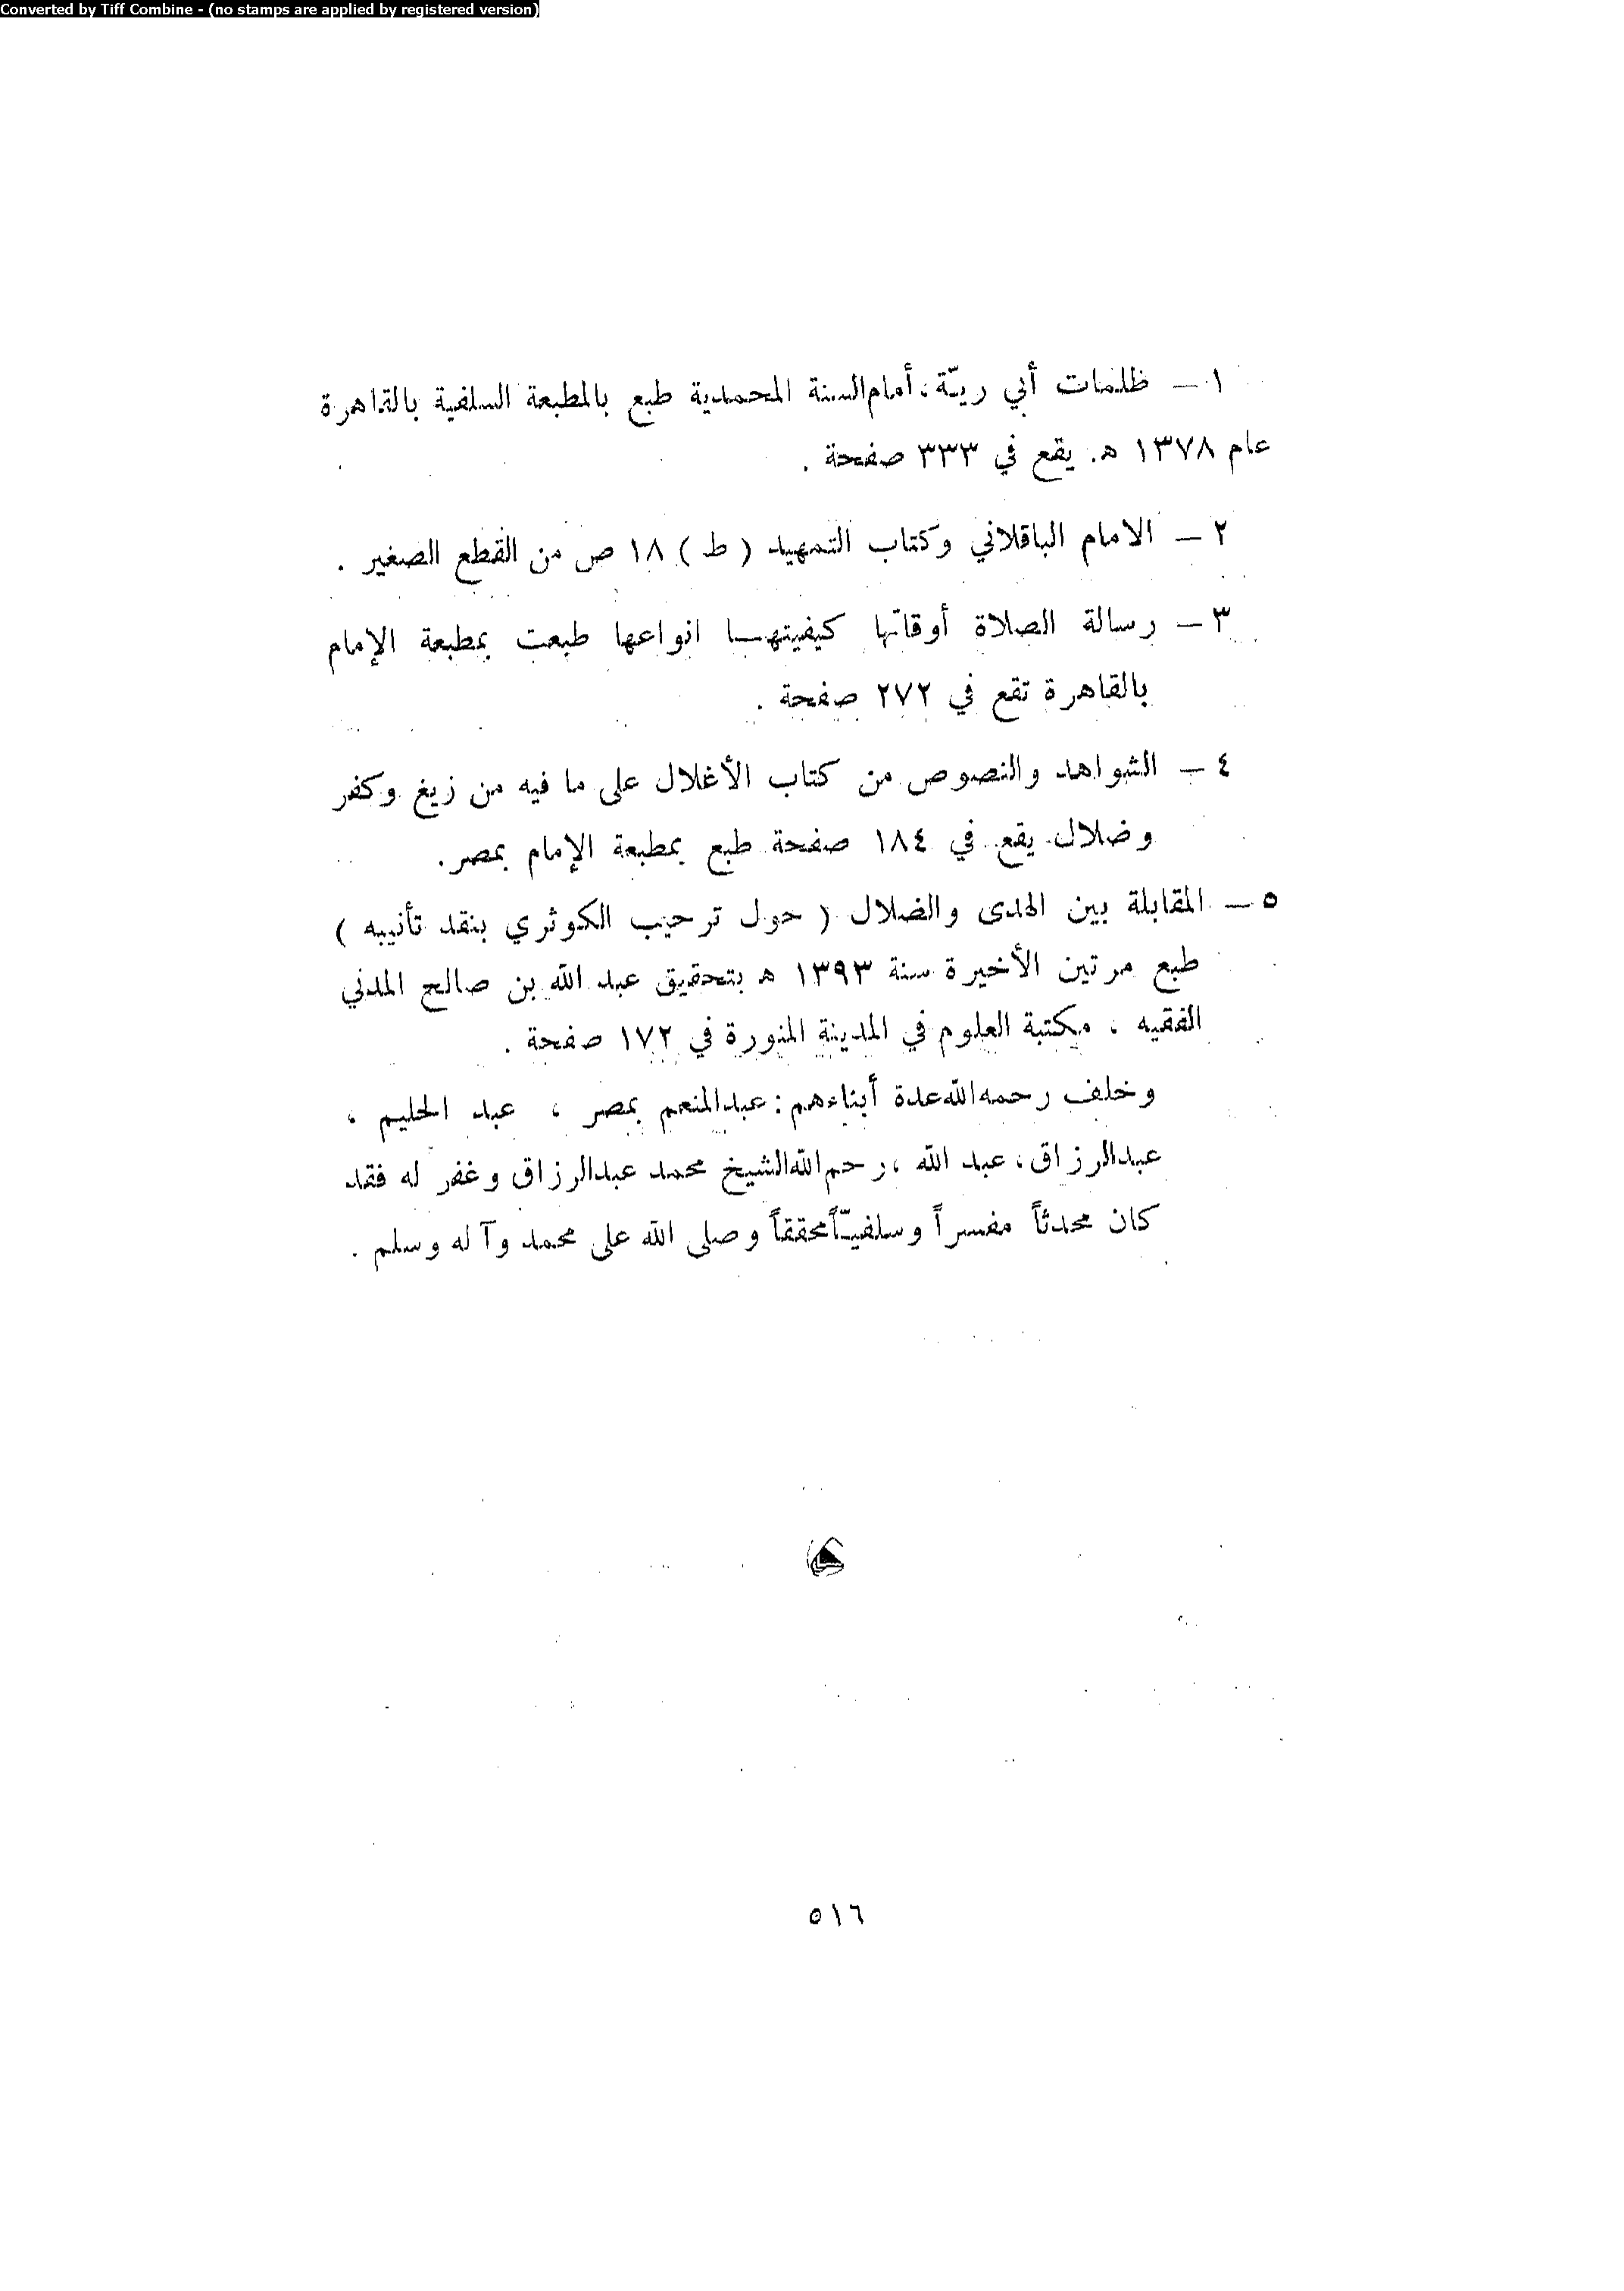 Converted by Tiff Combine - (no stamps are applied by registered version)
١ ــ ظلمات أبي ريّة ، أمام السنة المحمدية طبع بالمطبعة السلفية بالقاهرة
عام ١٣٧٨ ه. يقع في ٣٣٣ صفحة .
٢ ــ الامام الباقلاني وكتاب التمهيد ( ط ) ١٨ ص من القطع الصغير .
٣ ــ رسالة الصلاة أوقاتها كيفيتهـا انواعها طبعت بمطبعة الإمام
بالقاهرة تقع في ٢٧٢ صفحة .
٤ ــ الشواهد والنصوص من كتاب الأغلال على ما فيه من زيغ وكفر
وضلال يقع في ١٨٤ صفحة طبع بمطبعة الإمام بمصر .
٥ ــ المقابلة بين الهدى والضلال ( حول ترحيب الكوثري بنقد تأنيبه )
طبع مرتين الأخيرة سنة ١٣٩٣ ه بتحقيق عبد الله بن صالح المدني
الفقيه ، مكتبة العلوم في المدينة المنورة في ١٧٢ صفحة .
وخلف رحمه الله عدة أبناء هم : عبد المنعم بمصر ، عبد الحليم ،
عبد الرزاق ، عبد الله ، رحم الله الشيخ محمد عبد الرزاق وغفر له فقد
كان محدثاً مفسراً وسلفيّاً محققاً وصلى الله على محمد وآله وسلم .
٥١٦